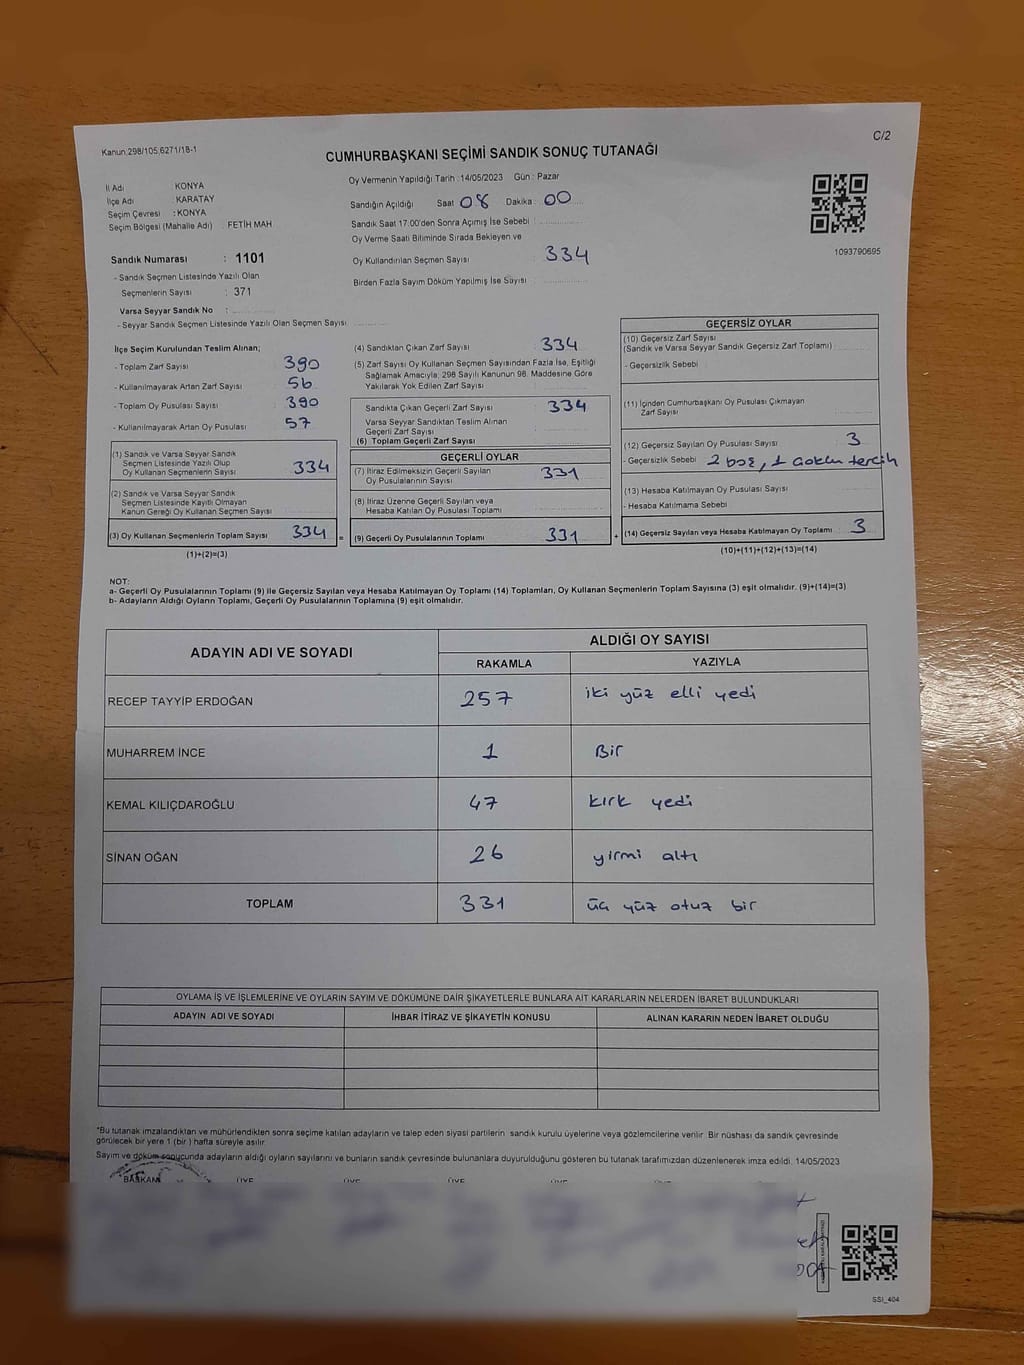 Kanun:298/105,6271/18-1
C/2
CUMHURBAŞKANI SEÇİMİ SANDIK SONUÇ TUTANAĞI
İl Adı KONYA
İlçe Adı : KARATAY
Seçim Çevresi : KONYA
Seçim Bölgesi (Mahalle Adı) : FETİH MAH
Oy Vermenin Yapıldığı Tarih :14/05/2023 Gün : Pazar
Sandığın Açıldığı Saat 08 Dakika : 00
Sandık Saat 17:00'den Sonra Açımış İse Sebebi :
Oy Verme Saati Bitiminde Sırada Bekleyen ve
Oy Kullandırılan Seçmen Sayısı : 334
Birden Fazla Sayım Döküm Yapılmış İse Sayısı :
1093790695
Sandık Numarası : 1101
- Sandık Seçmen Listesinde Yazılı Olan
Seçmenlerin Sayısı : 371
Varsa Seyyar Sandık No :
- Seyyar Sandık Seçmen Listesinde Yazılı Olan Seçmen Sayısı:
İlçe Seçim Kurulundan Teslim Alınan;
- Toplam Zarf Sayısı : 390
- Kullanılmayarak Artan Zarf Sayısı : 56
- Toplam Oy Pusulası Sayısı : 390
- Kullanılmayarak Artan Oy Pusulası : 57
(1) Sandık ve Varsa Seyyar Sandık
Seçmen Listesinde Yazılı Olup
Oy Kullanan Seçmenlerin Sayısı : 334
(2) Sandık ve Varsa Seyyar Sandık
Seçmen Listesinde Kayıtlı Olmayan
Kanun Gereği Oy Kullanan Seçmen Sayısı :
(3) Oy Kullanan Seçmenlerin Toplam Sayısı : 334 =
(1)+(2)=(3)
(4) Sandıktan Çıkan Zarf Sayısı : 334
(5) Zarf Sayısı Oy Kullanan Seçmen Sayısından Fazla İse, Eşitliği
Sağlamak Amacıyla, 298 Sayılı Kanunun 98. Maddesine Göre
Yakılarak Yok Edilen Zarf Sayısı :
Sandıkta Çıkan Geçerli Zarf Sayısı : 334
Varsa Seyyar Sandıktan Teslim Alınan
Geçerli Zarf Sayısı :
(6) Toplam Geçerli Zarf Sayısı :
GEÇERLİ OYLAR
(7) İtiraz Edilmeksizin Geçerli Sayılan
Oy Pusulalarının Sayısı : 331
(8) İtiraz Üzerine Geçerli Sayılan veya
Hesaba Katılan Oy Pusulası Toplamı :
(9) Geçerli Oy Pusulalarının Toplamı : 331 +
GEÇERSİZ OYLAR
(10) Geçersiz Zarf Sayısı
(Sandık ve Varsa Seyyar Sandık Geçersiz Zarf Toplamı) :
- Geçersizlik Sebebi :
(11) İçinden Cumhurbaşkanı Oy Pusulası Çıkmayan
Zarf Sayısı :
(12) Geçersiz Sayılan Oy Pusulası Sayısı : 3
- Geçersizlik Sebebi : 2 boş, 1 çoklu tercih
(13) Hesaba Katılmayan Oy Pusulası Sayısı :
- Hesaba Katılmama Sebebi :
(14) Geçersiz Sayılan veya Hesaba Katılmayan Oy Toplamı : 3
(10)+(11)+(12)+(13)=(14)
NOT:
a- Geçerli Oy Pusulalarının Toplamı (9) ile Geçersiz Sayılan veya Hesaba Katılmayan Oy Toplamı (14) Toplamları, Oy Kullanan Seçmenlerin Toplam Sayısına (3) eşit olmalıdır. (9)+(14)=(3)
b- Adayların Aldığı Oyların Toplamı, Geçerli Oy Pusulalarının Toplamına (9) eşit olmalıdır.
ADAYIN ADI VE SOYADI ALDIĞI OY SAYISI
RAKAMLA YAZIYLA
RECEP TAYYİP ERDOĞAN 257 iki yüz elli yedi
MUHARREM İNCE 1 Bir
KEMAL KILIÇDAROĞLU 47 kırk yedi
SİNAN OĞAN 26 yirmi altı
TOPLAM 331 üç yüz otuz bir
OYLAMA İŞ VE İŞLEMLERİNE VE OYLARIN SAYIM VE DÖKÜMÜNE DAİR ŞİKAYETLERLE BUNLARA AİT KARARLARIN NELERDEN İBARET BULUNDUKLARI
ADAYIN ADI VE SOYADI İHBAR İTİRAZ VE ŞİKAYETİN KONUSU ALINAN KARARIN NEDEN İBARET OLDUĞU
*Bu tutanak imzalandıktan ve mühürlendikten sonra seçime katılan adayların ve talep eden siyasi partilerin sandık kurulu üyelerine veya gözlemcilerine verilir. Bir nüshası da sandık çevresinde
görülecek bir yere 1 (bir ) hafta süreyle asılır.
Sayım ve döküm sonucunda adayların aldığı oyların sayılarını ve bunların sandık çevresinde bulunanlara duyurulduğunu gösteren bu tutanak tarafımızdan düzenlenerek imza edildi. 14/05/2023
BAŞKAN ÜYE ÜYE ÜYE ÜYE ÜYE
SSI_404